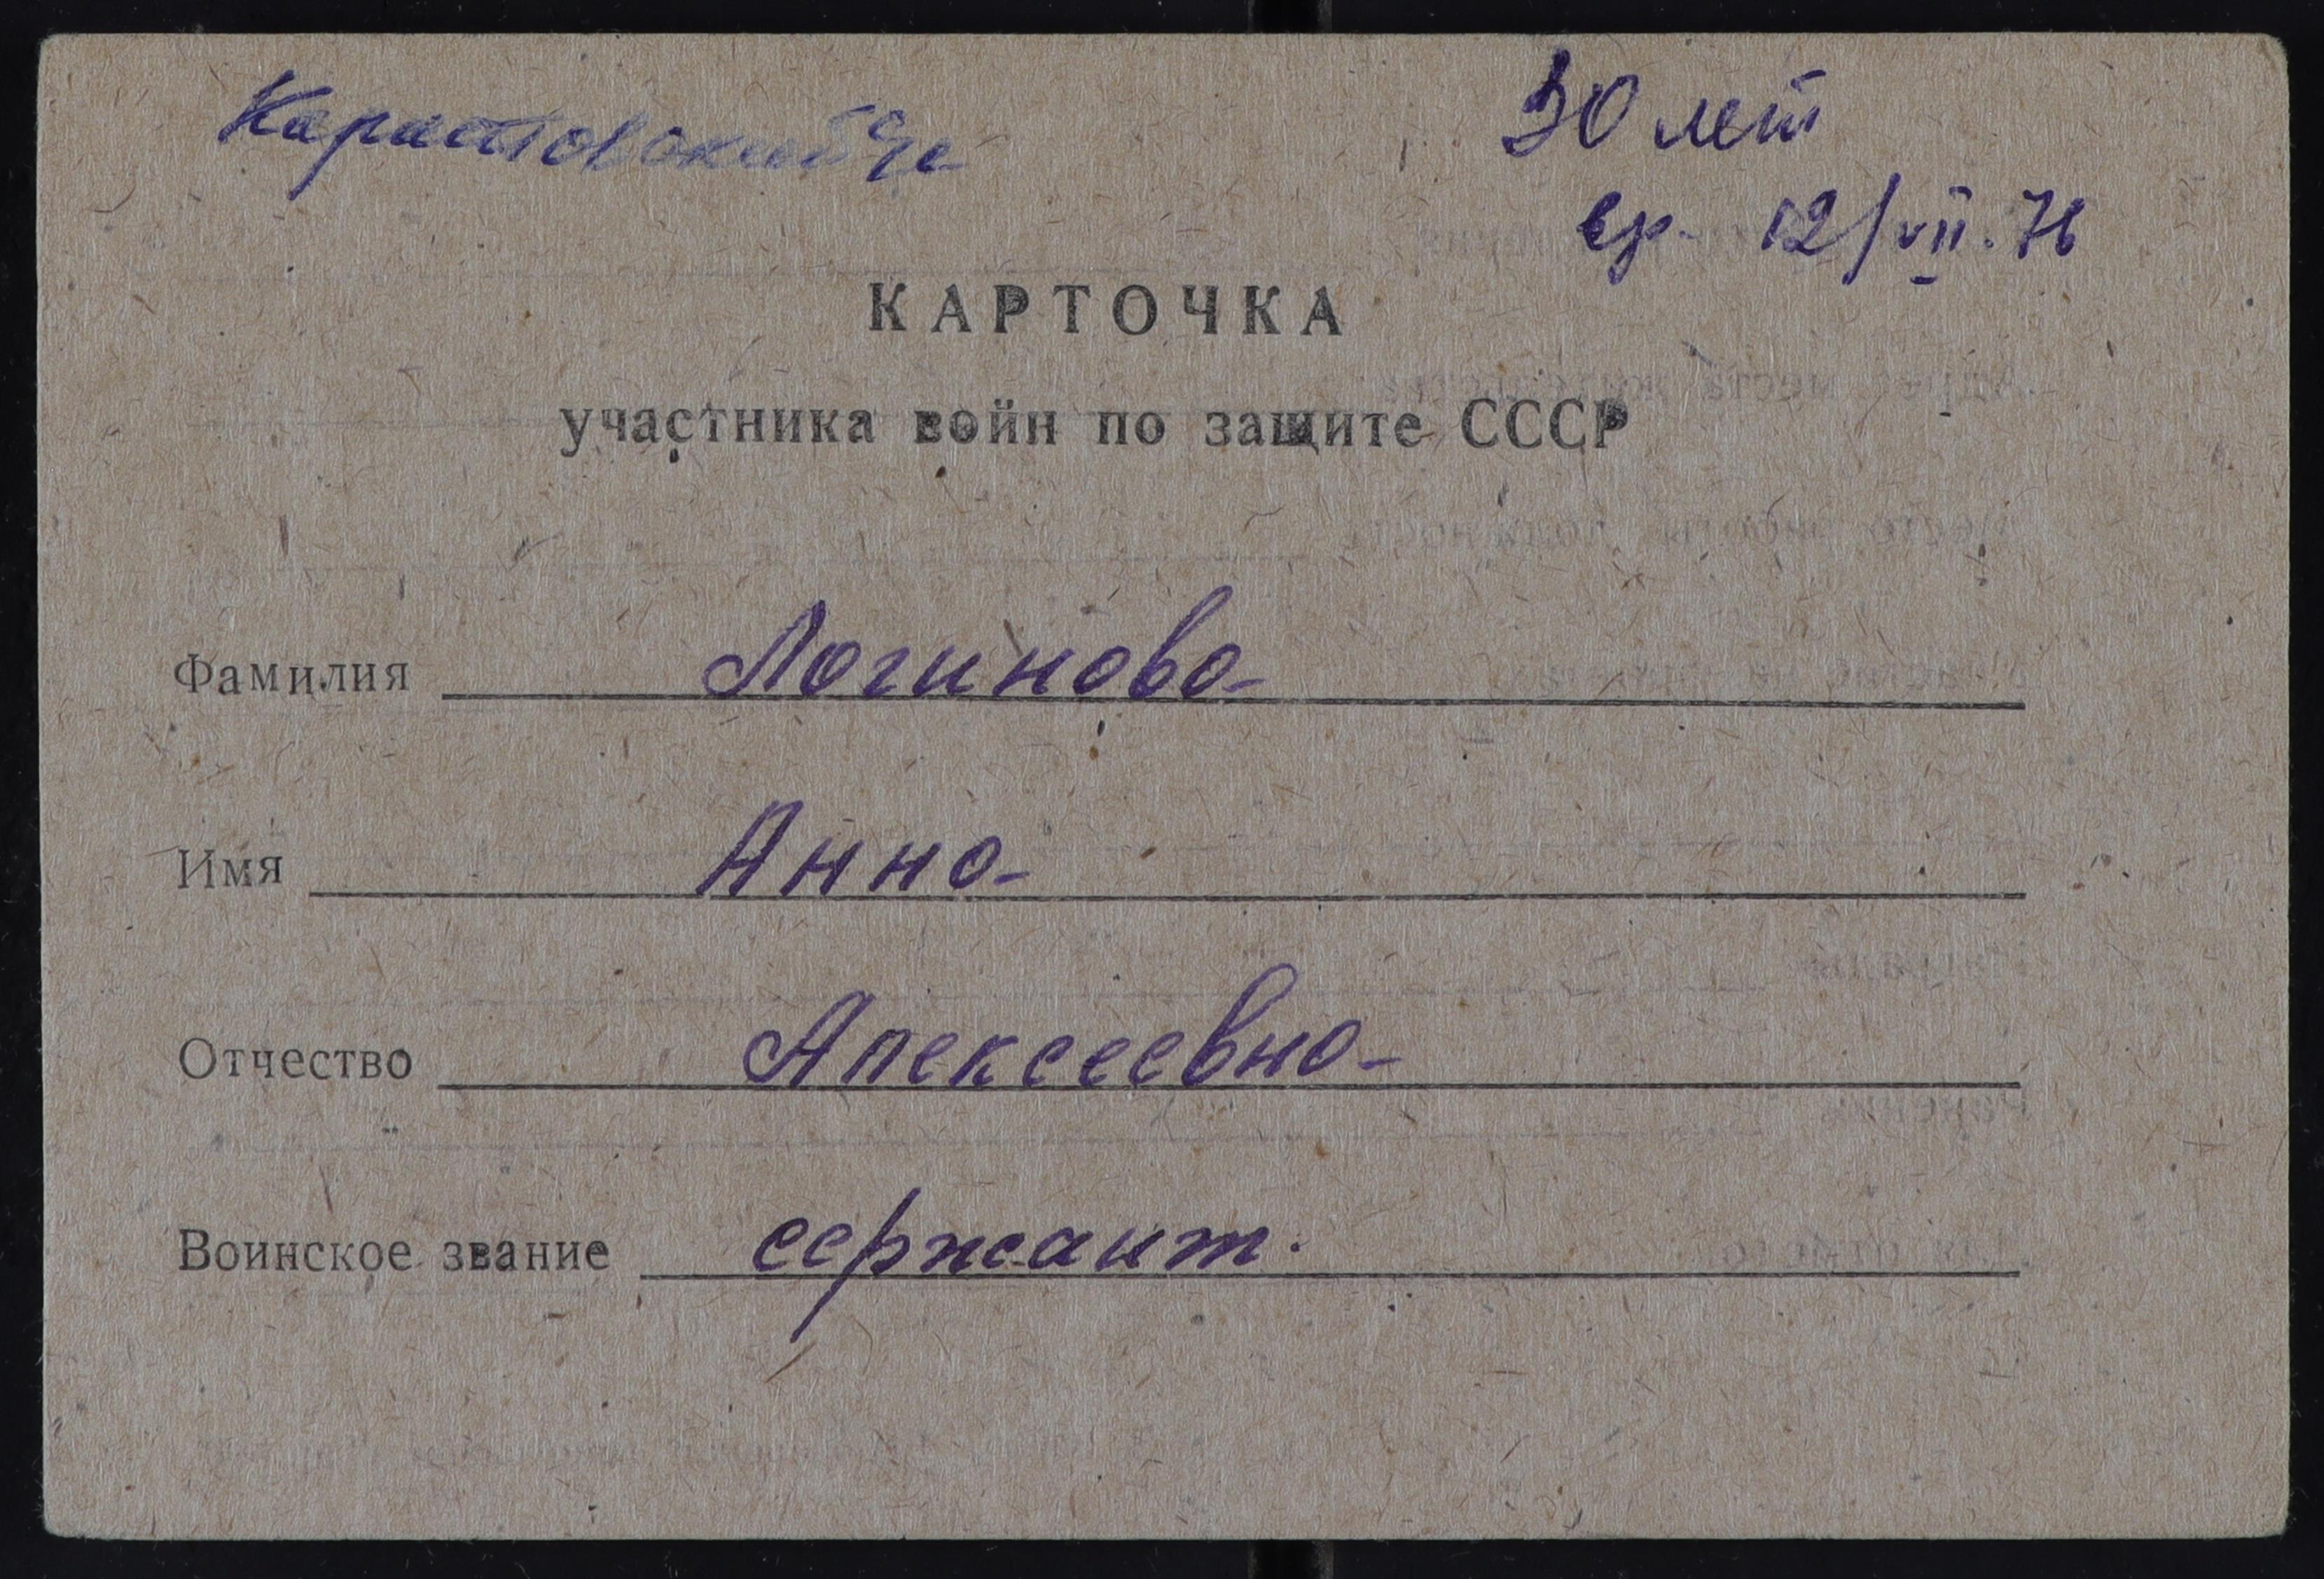 30 лет
вр. 12/VII.76
КАРТОЧКА
участника войн по защите СССР
Фамилия Логинова
Имя Анна
Отчество Алексеевна
Воинское звание сержант.